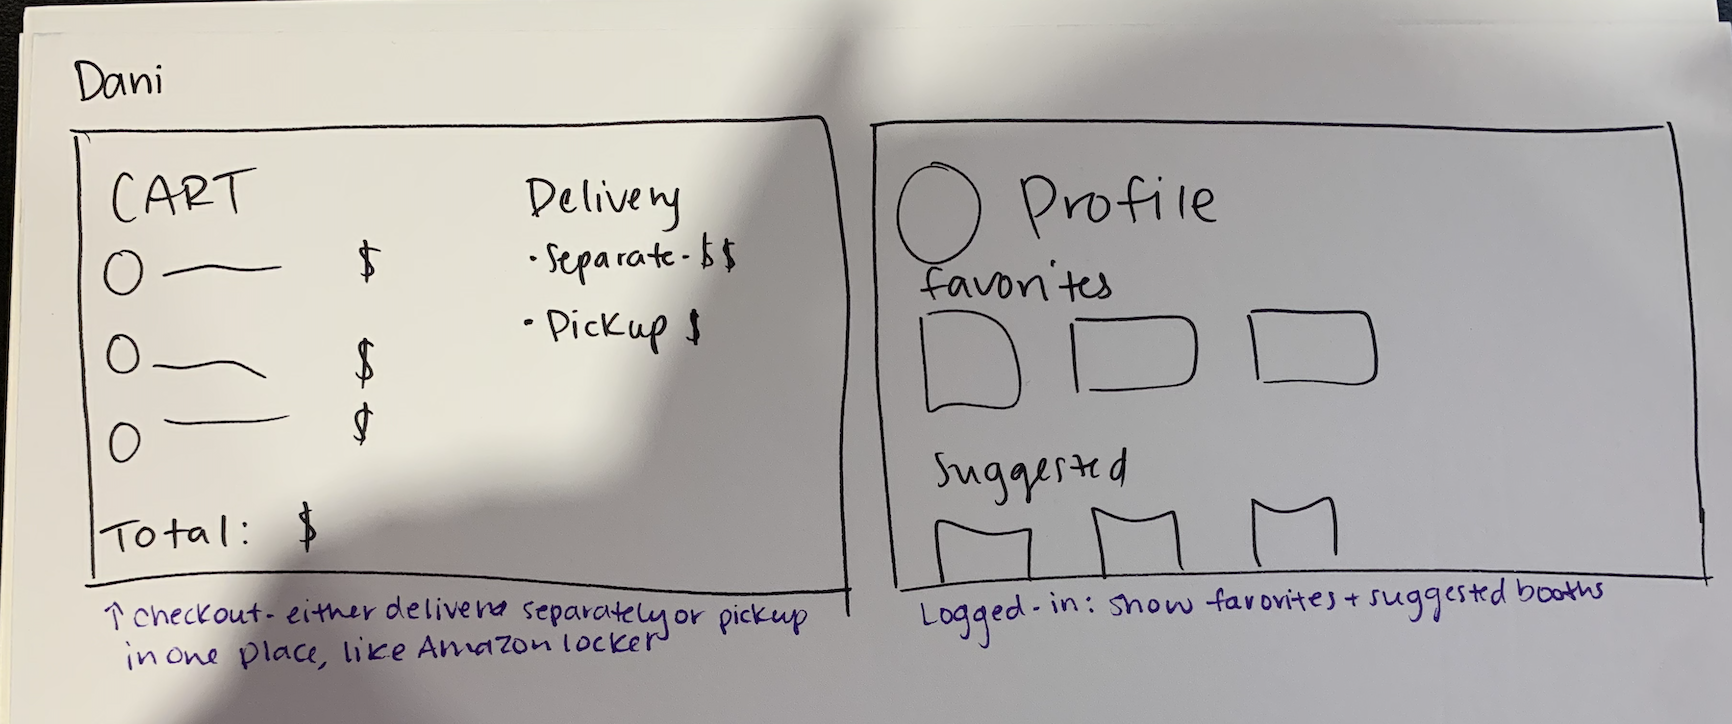 Dani
CART
$
$
$
Total: $
Delivery
· Separate - $$
· Pickup $
↑ checkout - either delivery separately or pickup
in one place, like Amazon locker
Profile
favorites
Suggested
Logged-in: show favorites + suggested booths